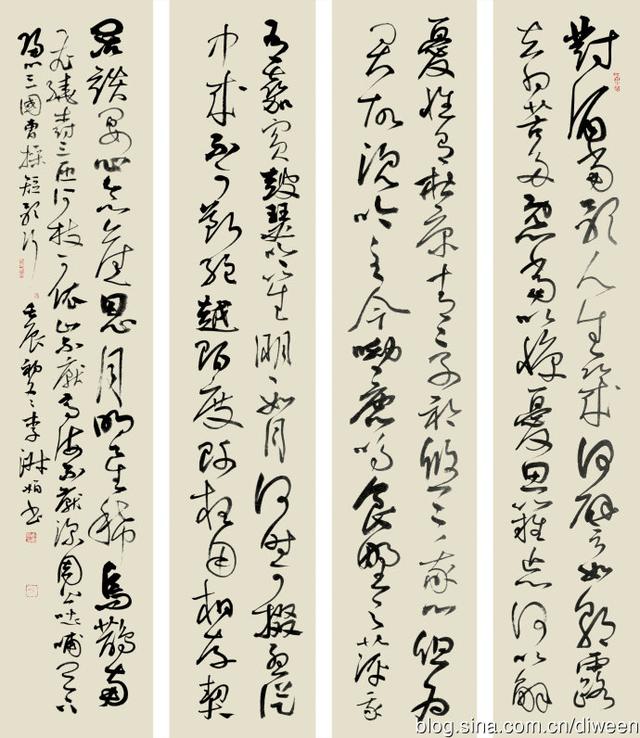 對酒當歌人生幾何譬如朝露
去日苦多慨當以慷憂思難忘何以解
憂惟有杜康青青子衿悠悠我心但為
君故沉吟至今呦呦鹿鳴食野之苹我
有嘉賓鼓瑟吹笙明明如月何時可掇憂從
中來不可斷絕越陌度阡枉用相存契
闊談讌心念舊恩月明星稀烏鵲南
飛繞樹三匝何枝可依山不厭高海不厭深周公吐哺天下
歸心三國曹操短歌行
壬辰初冬李淋柏書
blog.sina.com.cn/diween